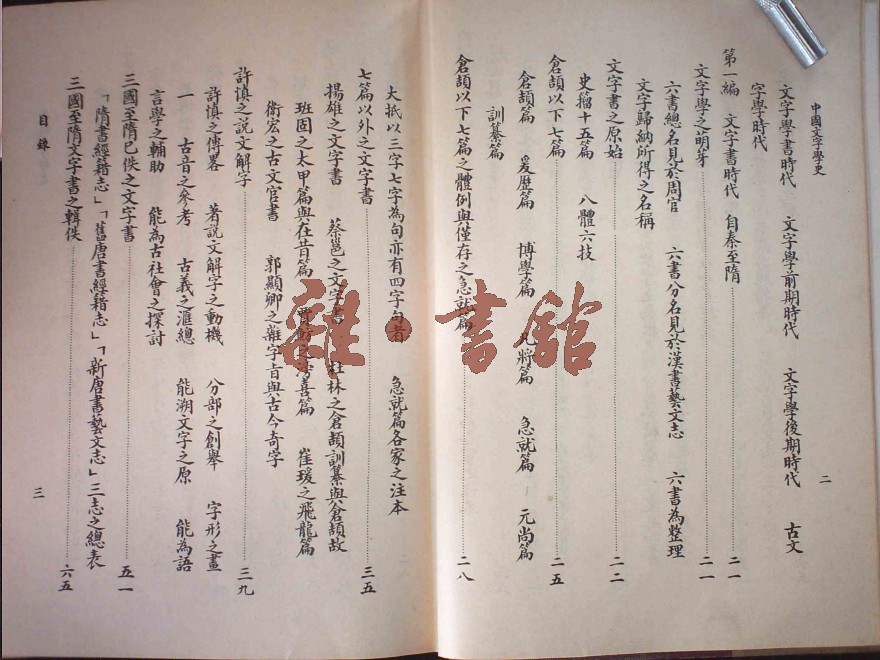 中國文字學史
二
文字學書時代 文字學前期時代 文字學後期時代 古文
字學時代
第一編 文字書時代 自秦至隋……二一
文字學之萌芽……二一
六書總名見於周官 六書分名見於漢書藝文志 六書為整理
文字歸納所得之名稱
文字書之原始……二二
史籀十五篇 八體六技
倉頡以下七篇……二五
倉頡篇 爰歷篇 博學篇 凡將篇 急就篇 元尚篇
訓纂篇
倉頡以下七篇之體例與僅存之急就篇……二八
大抵以三字七字為句亦有四字句者 急就篇各家之注本
七篇以外之文字書……三五
揚雄之文字書 蔡邕之文字書 杜林之倉頡訓纂與倉頡故
班固之太甲篇與在昔篇 賈魴之滂喜篇 崔瑗之飛龍篇
衛宏之古文官書 郭顯卿之雜字旨與古今奇字
許慎之說文解字……三九
許慎之傳畧 著說文解字之動機 分部之創舉 字形之畫
一 古音之參考 古義之滙總 能溯文字之原 能為語
言學之輔助 能為古社會之探討
三國至隋已佚之文字書……五一
「隋書經籍志」「舊唐書經籍志」「新唐書藝文志」三志之總表
三國至隋文字書之輯佚……六五
目錄
三
雜·書館